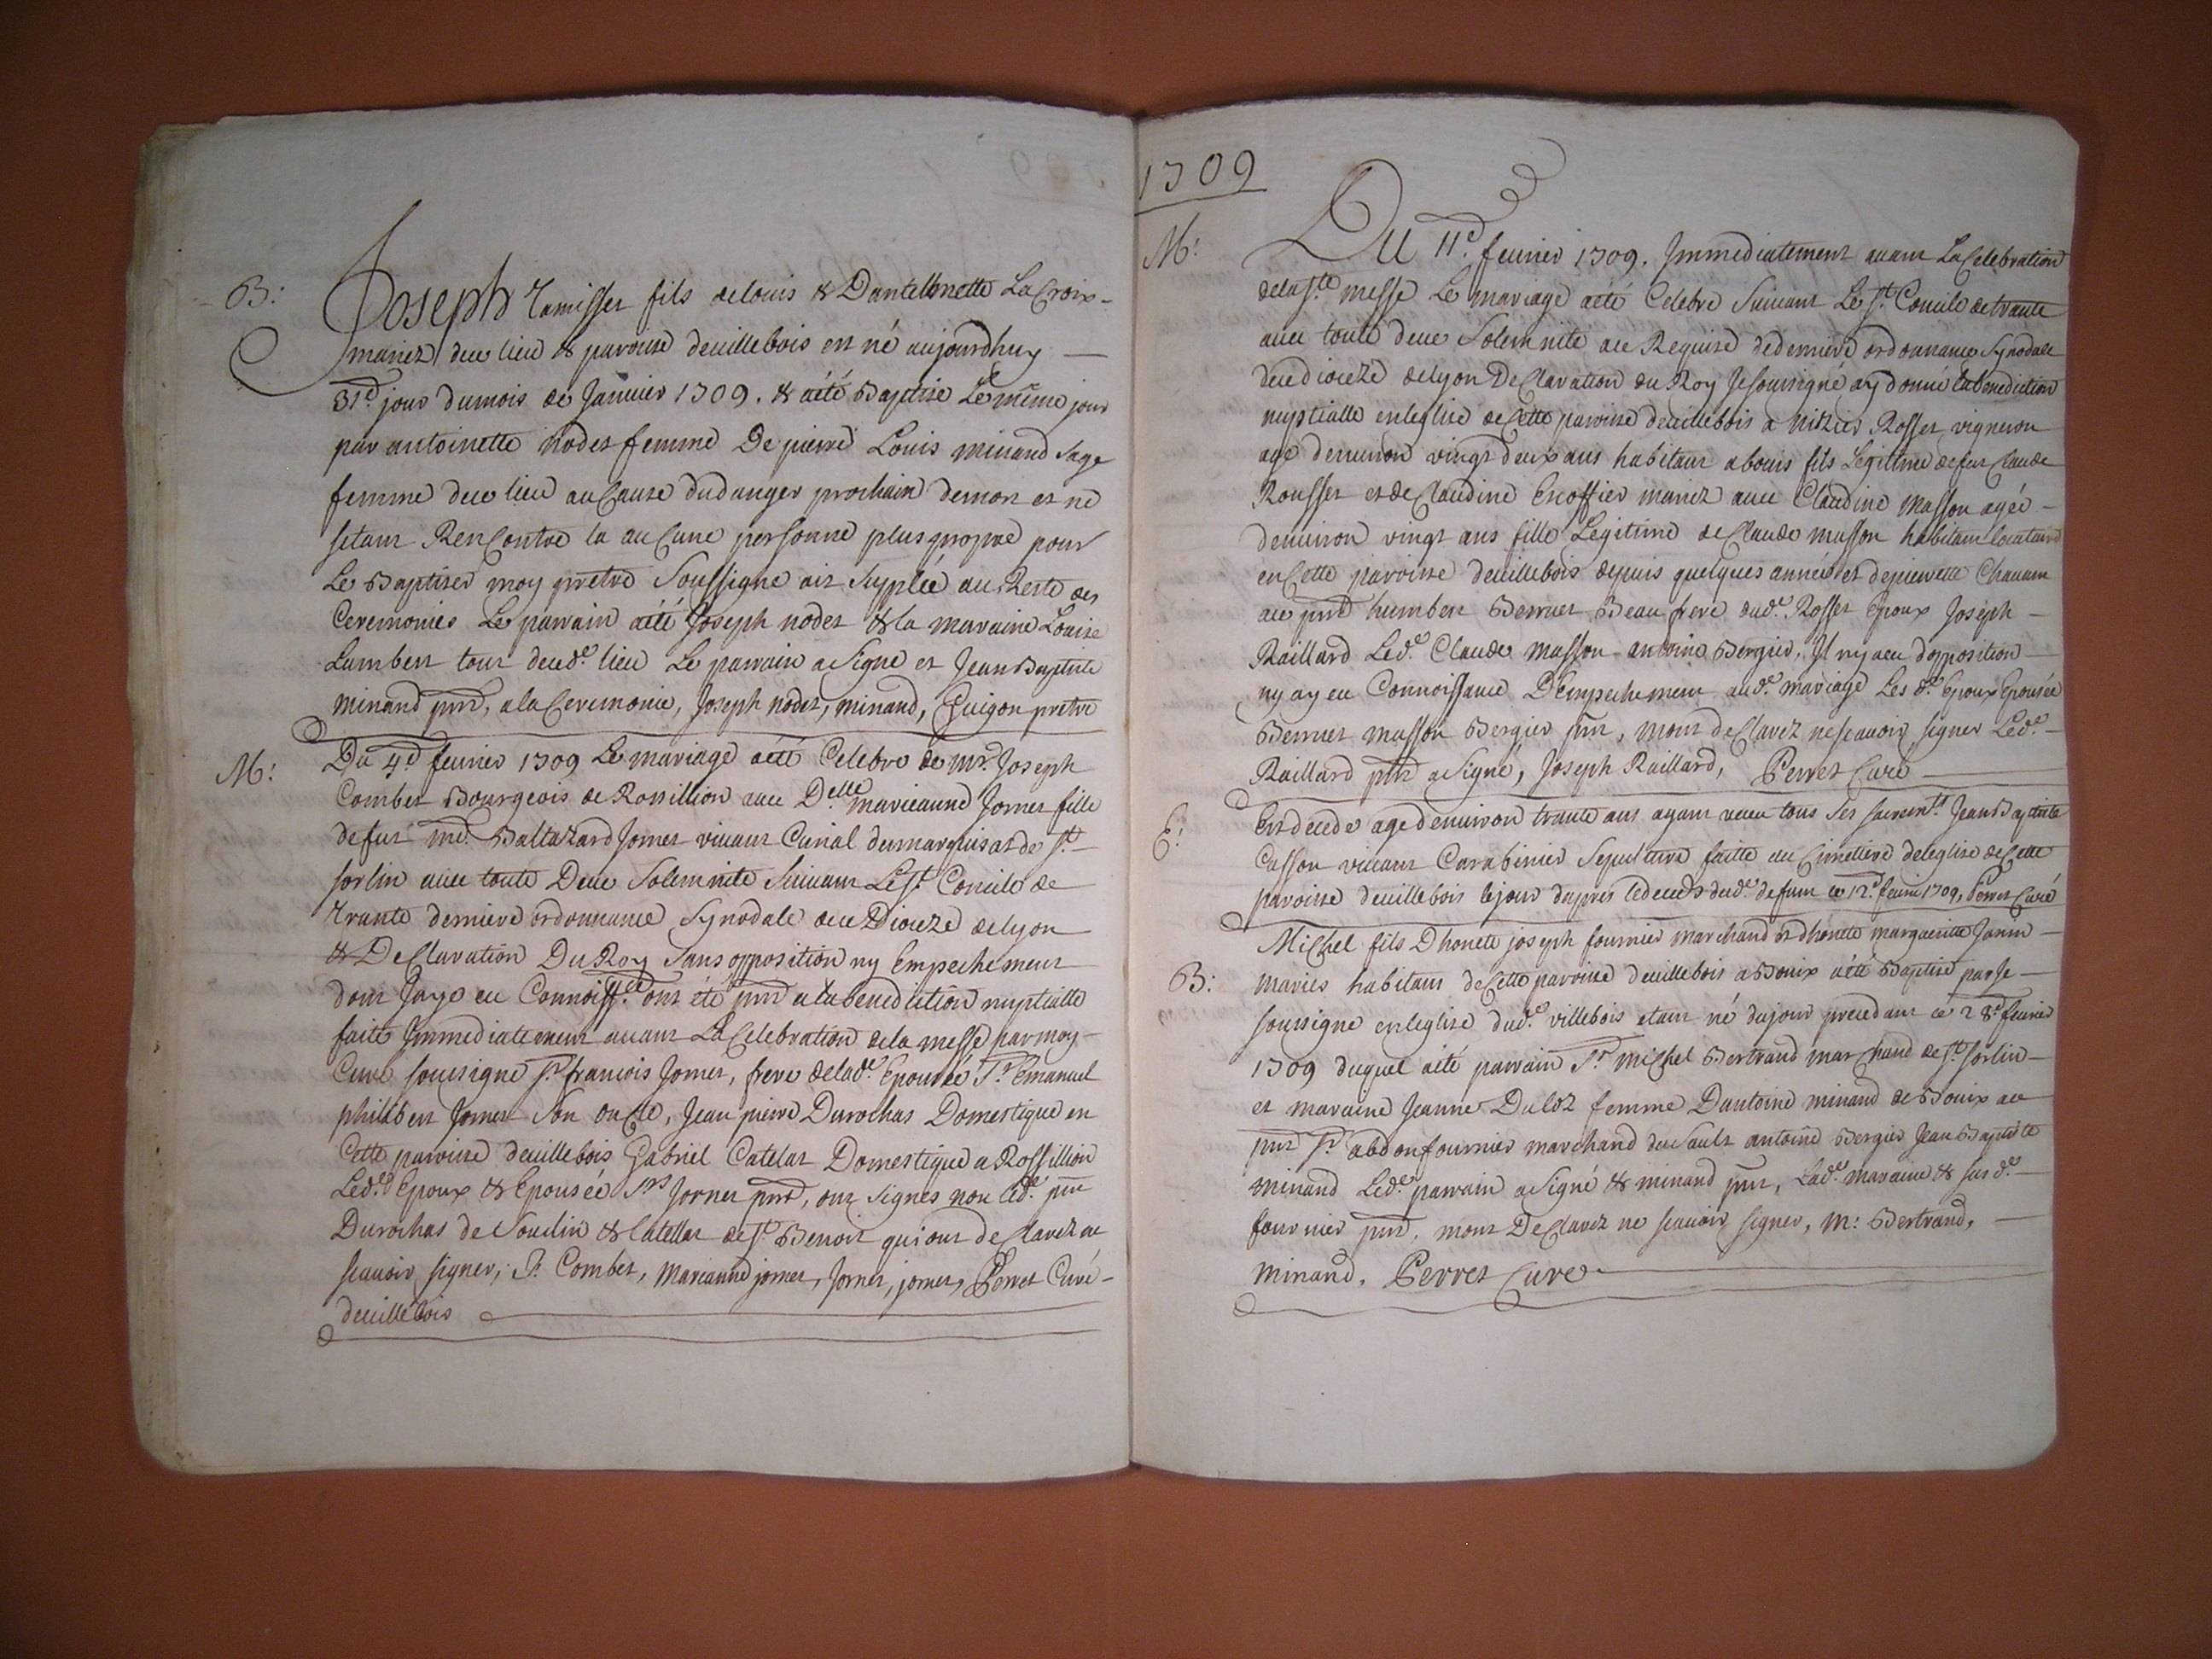 B:
Joseph Tamisser fils de louis & Dantelmette La Croix -
mariez duu lieu & paroisse deuillebois est né aujourdhuy —
31e jour dumois de Januier 1709. & aété Baptisé Le même jour
par antoinette nodet femme De pierre Louis minand sage
femme duu lieu au Cause dudanger prochain demort et ne
setant Ren Contré la au Cune personne plus propre pour
Le Baptiser moy prêtre Soussigne ait Supléé au Reste des
Ceremonies Le parrain aété Joseph nodet & la maraine Louise
Lambert tous dud.e lieu Le parrain a Signé et Jean Baptiste
minand pnt, a la Ceremonie, Joseph nodet, minand, Guigon prêtre
M:
Du 4e feurier 1709 Le mariage aété Celebré de mr. Joseph
Combet Bourgeois de Rossillion auec D.elle marieanne Jornet fille
defut me. Baltazard Jornet viuant Curial dumarquisat de st. -
sorlin auec toute Deue Solemnite Suiuant Le st. Concile de
Trante derniere ordonnance Synodale duu Diocèze de lyon
& DeClaration Du Roy Sans opposition ny Empechement
dont Jaye eu Connoiss.ce ont été pnt a la benediction nuptialle
faitte Immediatement auant La Celebration de la messe par moy -
Curé soussigne sr. francois Jornet, frere de lad.e Epousée Sr. Emanuel
philibert Jornet Son oncle, Jean pierre Durochas Domestique en
Cette paroisse deuillebois Gabriel Catelat Domestique a Rossillion
Led.es Epoux & Epousée Srs Jornet pnt, ont Signés non led.t pnt
Durochas de Soudin & Catellat de st. Benoit qui ont de Clarez ne
scauoir signer; J. Combet, marieanne jornet, Jornet, jornet, Perret Curé -
deuillebois
1709
M:
Du 11e. feurier 1709. Immediatement auant La Celebration
dela ste. messe Le mariage aété Celebré Suiuant Le st. Concile de trante
auec toute deue Solemnite au Requise de derniere ordonnance Synodale
duu dioceze de lyon De Claration du Roy Je soussigné ay donné la benediction
nuptialle enleglise de Cette paroisse deuillebois a nizier Rosset vigneron
age denuiron vingt deux ans habitant a bouis fils Legitime de fut Claude
Rousset et de Claudine Escoffier mariez auec Claudine masson agée -
denuiron vingt ans fille Legitime de Claude masson habitant locataire
en Cette paroisse deuillebois depuis quelques années et depierrette Chauant
au pnt humbert Bernet Beau frere dud.t Rosset Epoux Joseph -
Raillard Led.t Claude masson antoine Bergier, Il ny a eu dopposition —
ny ay eu Connoissance DEmpechement aud.t mariage Les d.ts Epoux Epousée
Bernet masson Bergier pnt, mont de Clarez nescauoir signer Led.t -
Raillard pnt a Signé, Joseph Raillard, Perret Curé —
E:
Est decede age denuiron trante ans ayant receu tous Ses sacrem.ts Jean Baptiste
Casson viuant Carabinier Sepulture faitte au Cimettiere de leglise de Cette
paroisse deuillebois lejour dapres ledeceds dud.t defunt ce 12e. feurier 1709, Perret Curé
B:
Michel fils Dhonete joseph fournier marchand & dhonete marguerite Janin -
mariés habitans de Cette paroisse deuillebois a Bouix aété Baptisé par Je -
soussigne enleglise dud.t villebois etant né du jour precedant ce 28e feurier
1709 duquel aété parrain Sr. michel Bertrand marchand de st. sorlin -
et maraine Jeanne Duloz femme Dantoine minand de Bouix au
pnt sr. abdon fournier marchand du Sault antoine Bergier Jean Baptiste
minand Led.t parrain a Signé & minand pnt, Lad.e maraine & susd.t —
fournier pnt, mont De Clarez ne scauoir signer, m: Bertrand, —
minand, Perret Curé